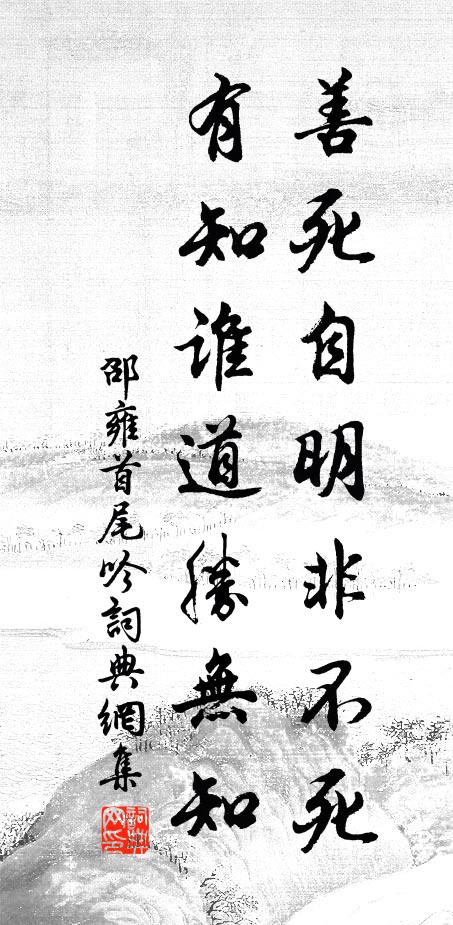 善死自明非不死
有知誰道勝無知
邵雍首尾吟詞典網集